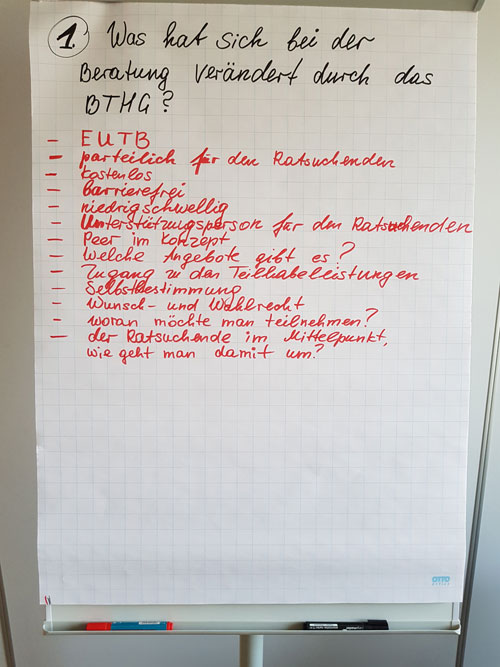 1. Was hat sich bei der
Beratung verändert durch das
BTHG?
- EUTB
- parteilich für den Ratsuchenden
- kostenlos
- barrierefrei
- niedrigschwellig
- Unterstützungsperson für den Ratsuchenden
- Peer im Konzept
- Welche Angebote gibt es?
- Zugang zu den Teilhabeleistungen
- Selbstbestimmung
- Wunsch- und Wahlrecht
- woran möchte man teilnehmen?
- der Ratsuchende im Mittelpunkt,
wie geht man damit um?
OTTO